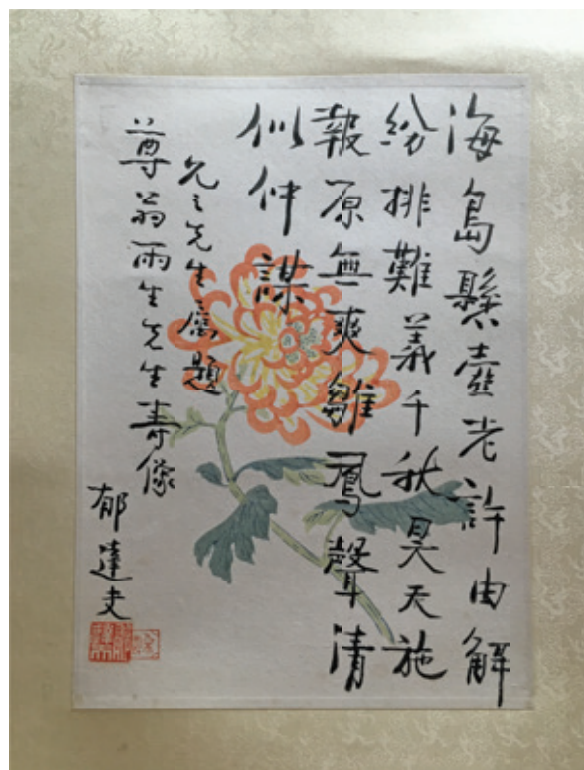 海島懸壺老許由解
紛排難義千秋昊天施
報原無爽雛鳳聲清
似仲謀
允之先生屬題
尊翁雨生先生壽像
郁達夫